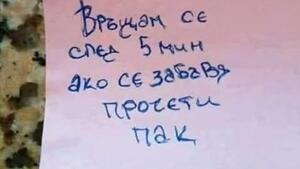 Връщам се
след 5 мин
ако се забавя
прочети
пак